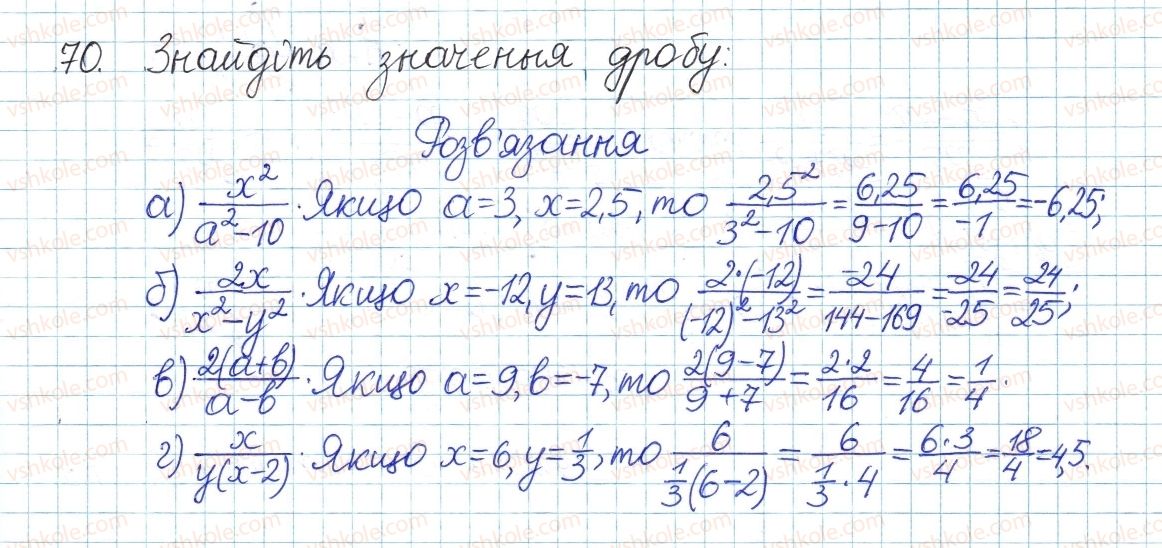 70. Знайдіть значення дробу:
Розв'язання
а) x²/(a²-10). Якщо a=3, x=2,5, то 2,5²/(3²-10) = 6,25/(9-10) = 6,25/-1 = -6,25;
б) 2x/(x²-y²). Якщо x=-12, y=13, то 2·(-12)/((-12)²-13²) = -24/(144-169) = -24/-25 = 24/25;
в) 2(a+b)/(a-b). Якщо a=9, b=-7, то 2(9-7)/(9+7) = 2·2/16 = 4/16 = 1/4.
г) x/(y(x-2)). Якщо x=6, y=1/3, то 6/(1/3(6-2)) = 6/(1/3·4) = 6·3/4 = 18/4 = 4,5.